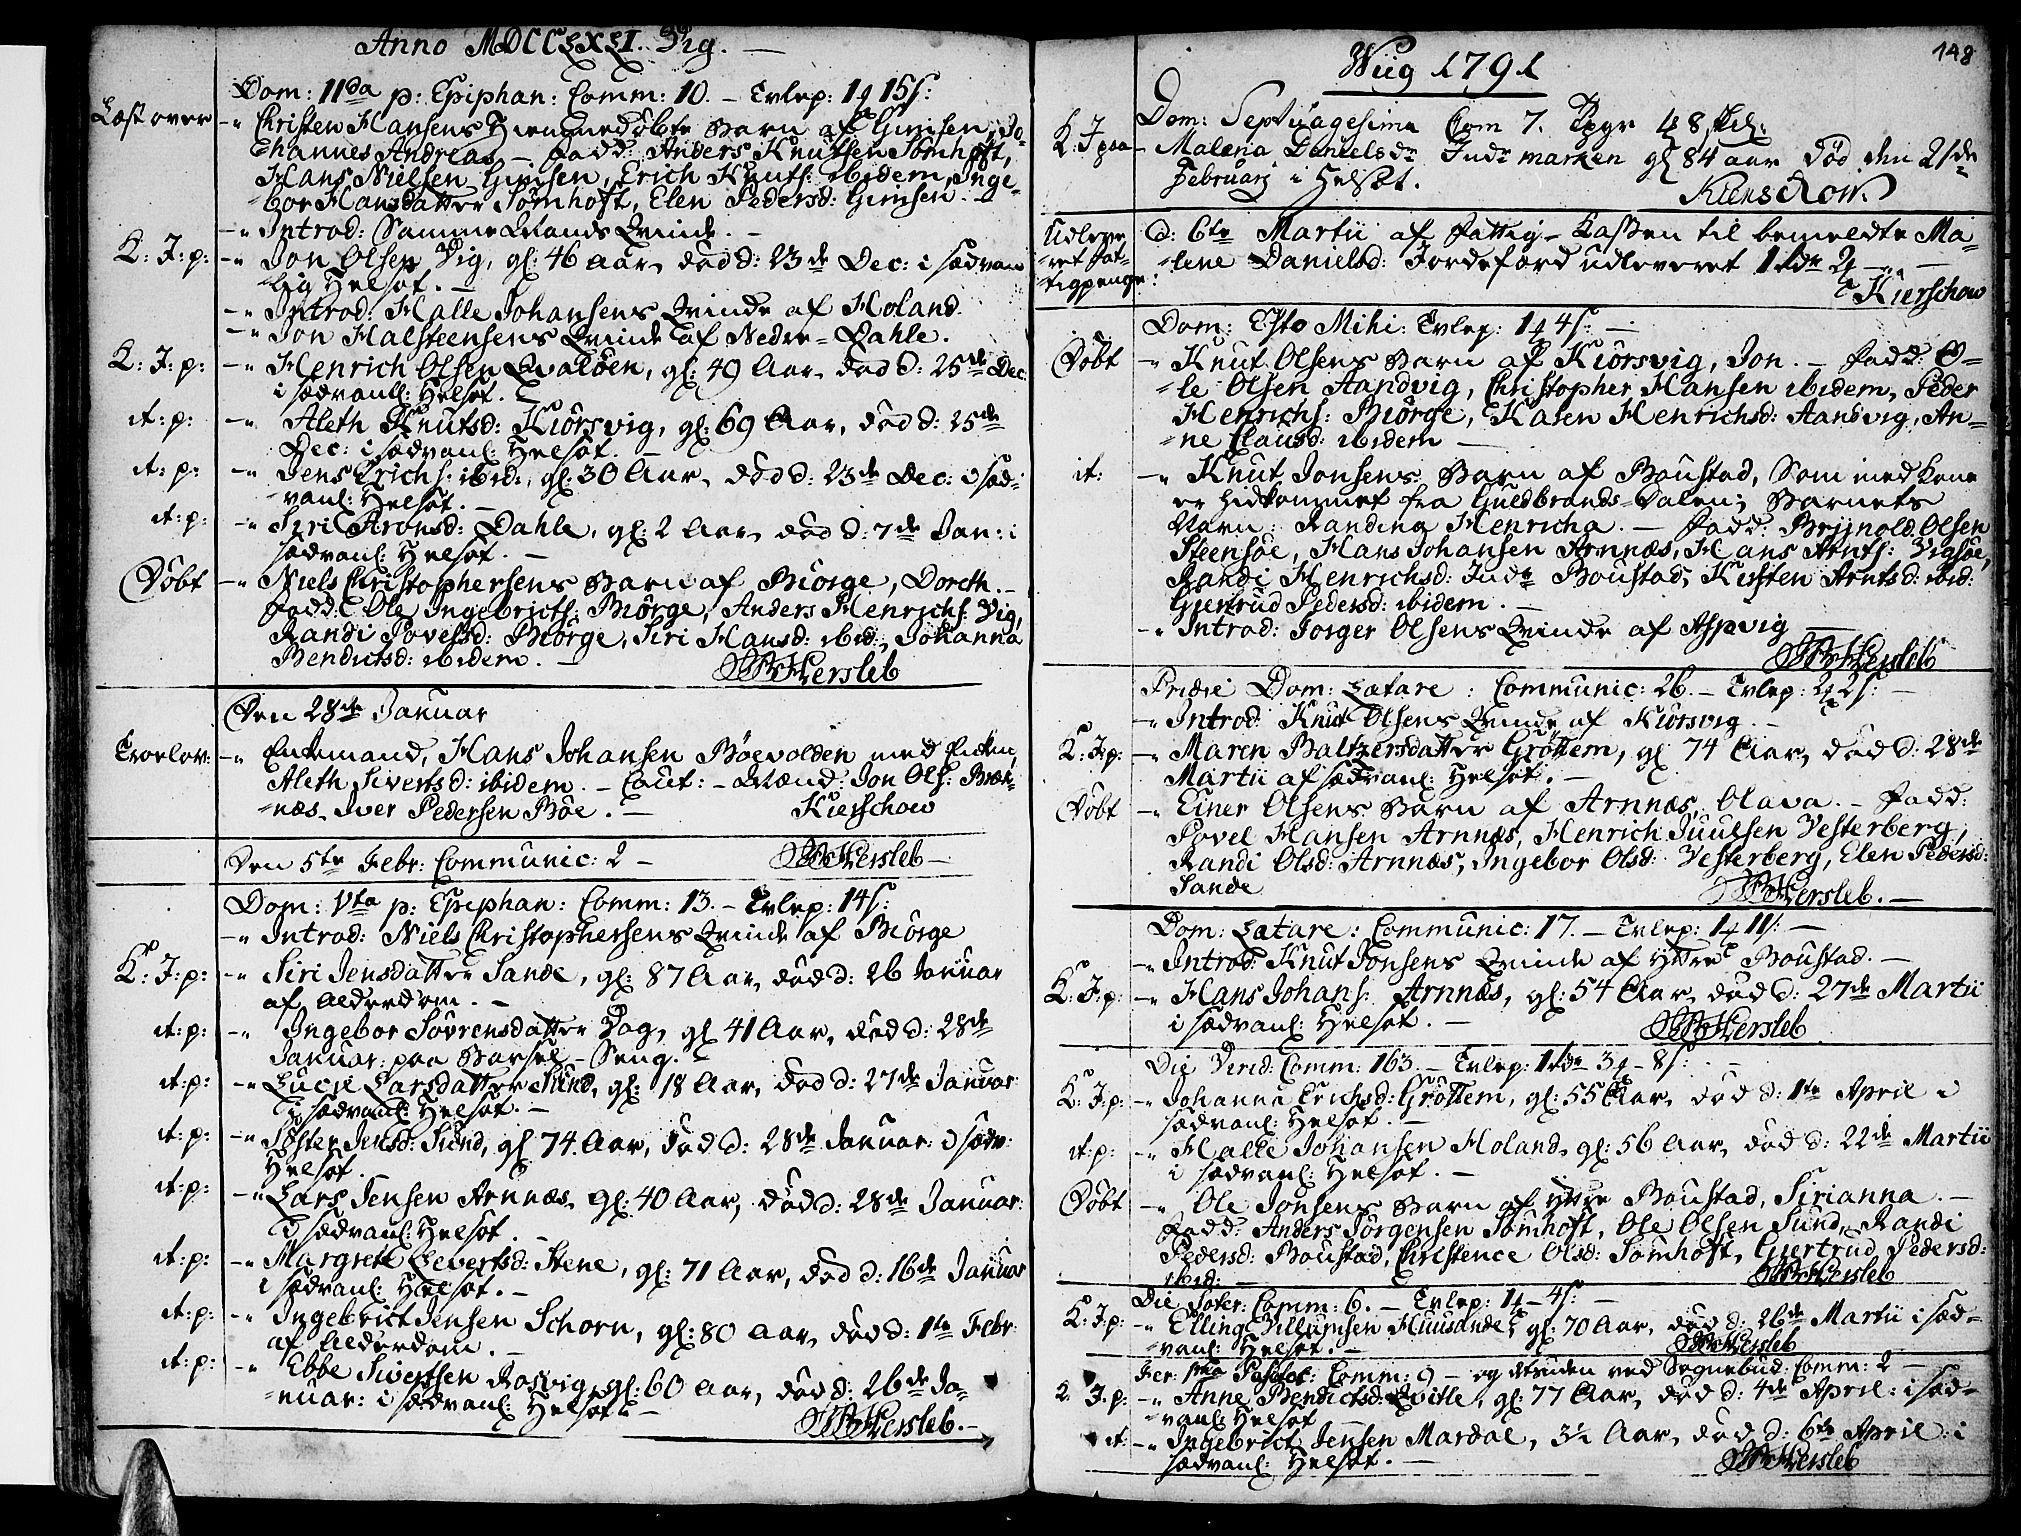 Anno MDCCLXLI. Vig.
Dom: IIda p: Epiphan: Comm: 10. – Tvlep: 1 ꝗ 15 s:
Læst over -" Christen Hansens Hiemmedøbte Barn af Gimsen, Jo-
=hannes Andreas – Fadd: Anders Knutsen Somhoft,
Hans Nielsen Gimsen, Erich Knuts: ibidem, Inge-
=bor Hansdatter Somhoft, Elen Pedersd: Gimsen. –
-" Introd: Samme Mands Qvinde. –
K: J: p: -" Jon Olsen Vig, gl: 46 Aar, død d: 23de Dec: i sædvan
=lig Helsot. –
-" Introd: Halle Johansens Qvinde af Holand.
-" Jon Halsteensens Qvinde af Nedre=Dahle.
K: J: p: -" Henrich Olsen Qvaløen, gl: 49 Aar, død d: 25de Dec:
i sædvanl: Helsot.
it: p: -" Aleth Knutsd: Kiørsvig, gl: 69 Aar, død d: 25de
Dec: i sædvanl: Helsot. –
it: p: -" Jens Erichs: ibid:, gl: 30 Aar, død d: 23de Dec: i sæd-
=vanl: Helsot. –
it: p: -" Siri Aronsd: Dahle, gl: 2 Aar, død d: 7de Jan: i
sædvanl: Helsot. –
Døbt -" Niels Christophersens Barn af Biørge, Doreth. –
Fadd: Ole Ingebricts: Biørge, Anders Henrichs: Vig,
Randi Povelsd: Biørge, Siri Hansd: ibid:, Johanna
Bendictsd: ibidem. – Hersleb
Den 28de Januar
Troelov: -" Enkemand, Hans Johansen Bøevolden med Enken,
Aleth Sivertsd: ibidem. – Caut: – Mænd: Jon Ols: Bræk-
=næs, Iver Pedersen Bøe. – Kierschow
Den 5te Febr: Communic: 2 – Hersleb –
Dom: Vta p: Epiphan: Comm: 13. – Tvlep: 14 s:
-" Introd: Niels Christophersens Qvinde af Biørge
K: J: p: -" Siri Jensdatter Sande, gl: 87 Aar, død d: 26 Januar
af Alderdom. –
it: p: -" Ingebor Sørensdatter Dag, gl 41 Aar, død d: 28de
Januar: paa Barsel – Seng.
it: p: -" Lucie Larsdatter Sund, gl: 18 Aar, død d: 27de Januar:
i sædvanl: Helsot. –
it: p: -" Søster Jensd: Sund, gl 74 Aar, død d: 28de Januar: i sædv:
Helsot. –
it: p: -" Lars Jensen Arnnæs, gl: 40 Aar, død d: 28de Januar:
i sædvanl: Helsot. –
it: p: -" Margrete Severtsd: Stene, gl: 71 Aar, død d: 16de Januar
i sædvanl: Helsot. –
it: p: -" Ingebrict Jensen Schorn, gl: 80 Aar, død d: 1te Febr:
af Alderdom. –
it: p: -" Ebbe Sivertsen Rosvig, gl: 60 Aar, død d: 26de Ja-
=nuar: i sædvanl: Helsot –
Hersleb. –
148
Wiig 1791
Dom: Septuagesima Com 7. 48 skl:
K: J psa – Malena Danielsdr Indr marken gl 84 aar død den 21de
Februarj i Helsot.
Kierschow
Udleve- d: 6te Martii af Fattig-Kassen til bemeldte Ma-
=ret Fat- =lene Danielsd: Jordefærd udleveret 1 rdr 2 ꝗ – " –
=tigpenge: Kierschow
Dom: Esto Mihi: Tvlep: 1 ꝗ 4 s: –
Døbt -" Knut Olsens Barn af Kiørsvig, Jon. – Fadd: O-
=le Olsen Aandvig, Christopher Hansen ibidem, Peder
Henrichs: Biørge, Karen Henrichsd: Aandvig, An-
=ne Clausd: ibidem –
it: -" Knut Jonsens Barn af Boustad, som med Kone
er hidkommet fra Guldbrands-Dalen; Barnets
Navn: Randina Henricha. – Fadd: Brijnold Olsen
Steensøe, Hans Johansen Arnnæs, Hans Arnts: Vigsøe,
Randi Henrichsd: Indr Boustad, Kirsten Arntsd: ibid:
Giertrud Pedersd: ibidem. –
-" Introd: Jørger Olsens Qvinde af Aspvig –
Hersleb
Pridie Dom: Lætare: Communic: 26. – Tvlep: 2 ꝗ 2 s: –
-" Introd: Knut Olsens Qvinde af Kiørsvig. –
K: J: p: -" Maren Baltzersdatter Grøttem, gl 74 Aar, død d: 28de
Martii af sædvanl: Helsot. –
Døbt -" Einer Olsens Barn af Arnnæs, Olava. – Fadd:
Povel Hansen Arnnæs, Henrich Juulsen Vesterberg,
Randi Olsd: Arnnæs, Ingebor Olsd: Vesterberg, Elen Pedersd:
Sande Hersleb. –
Dom: Lætare: Communic: 17. – Tvlep: 1 ꝗ 11 s: –
-" Introd: Knut Jonsens Qvinde af Yttre Boustad. –
K: J: p: -" Hans Johans: Arnnæs, gl: 54 Aar, død d: 27de Martii
i sædvanl: Helsot. – Hersleb
Die Virid: Comm: 163. – Tvlep: 1 rdr 3 ꝗ – 8 s: –
K: J: p: -" Johanna Erichsd: Grøttem, gl: 55 Aar, død d: 1te April i
sædvanl: Helsot. –
it: p: -" Halle Johansen Holand, gl: 56 Aar, død d: 22de Martii
i sædvanl: Helsot. –
Døbt -" Ole Jonsens Barn af Yttre Boustad, Sirianna. –
Fadd: Anders Jørgensen Somhoft, Ole Olsen Sund, Randi
Pedersd: Boustad, Christence Olsd: Somhoft, Giertrud Pedersd:
ibid: – Hersleb
Die Soter: Comm: 6. – Tvlep: 1 ꝗ – 4 s: –
K: J: p: -" Elling Villumsen Huusande, gl: 70 Aar, død d: 26de Martii i sæd-
=vanl: Helsot. – Hersleb
Fer: 1ma Paschat: Comm: 9 – og desuden ved Sognebud: Comm: 2 –
K: J: p: -" Anne Bendictsd: Qvitle, gl: 77 Aar, død d: 4de April: i sæd-
=vanl: Helsot –
it: -" Ingebrict Jensen Mardal, 3½ Aar, død d: 6te April: i
sædvanl: Helsot. – Hersleb